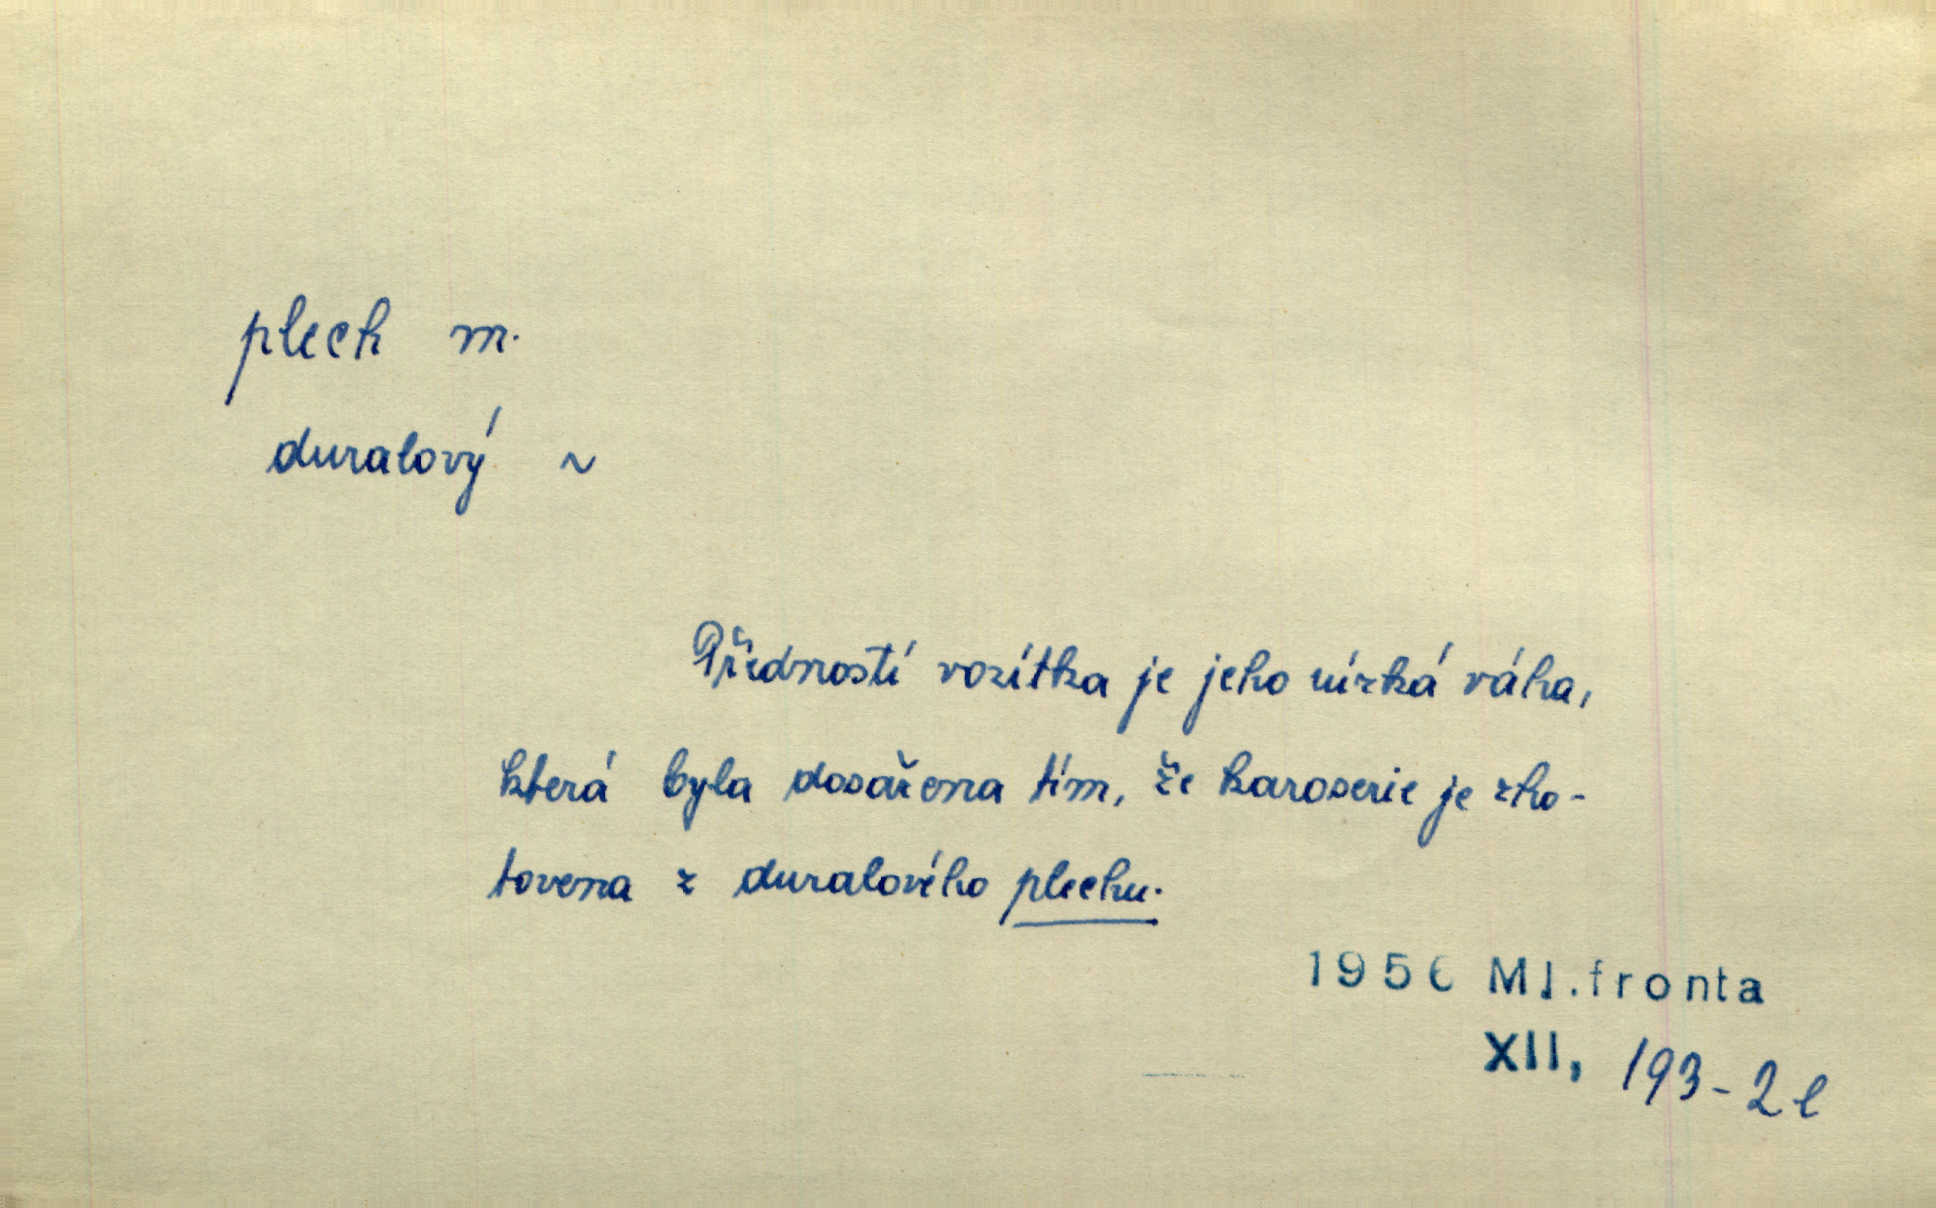 plech m.
duralový ~
Předností vozítka je jeho nízká váha,
která byla dosažena tím, že karoserie je zho-
tovena z duralového plechu.
1956 Ml.fronta
XII, 193-2 l